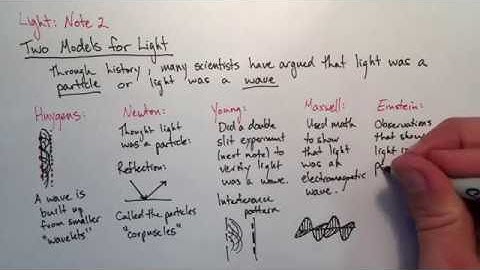 Light: Note 2
Two Models for Light
Through history, many scientists have argued that light was a
particle or light was a wave
Huygens:
A wave is
built up
from smaller
"wavelets"
Newton:
Thought light
was a particle:
Reflection:
Called the particles
"corpuscles"
Young:
Did a double
slit experiment
(next note) to
verify light
was a wave.
Interference
pattern
Maxwell:
Used math
to show
that light
was an
electromagnetic
wave.
Einstein:
Observations
that show
light